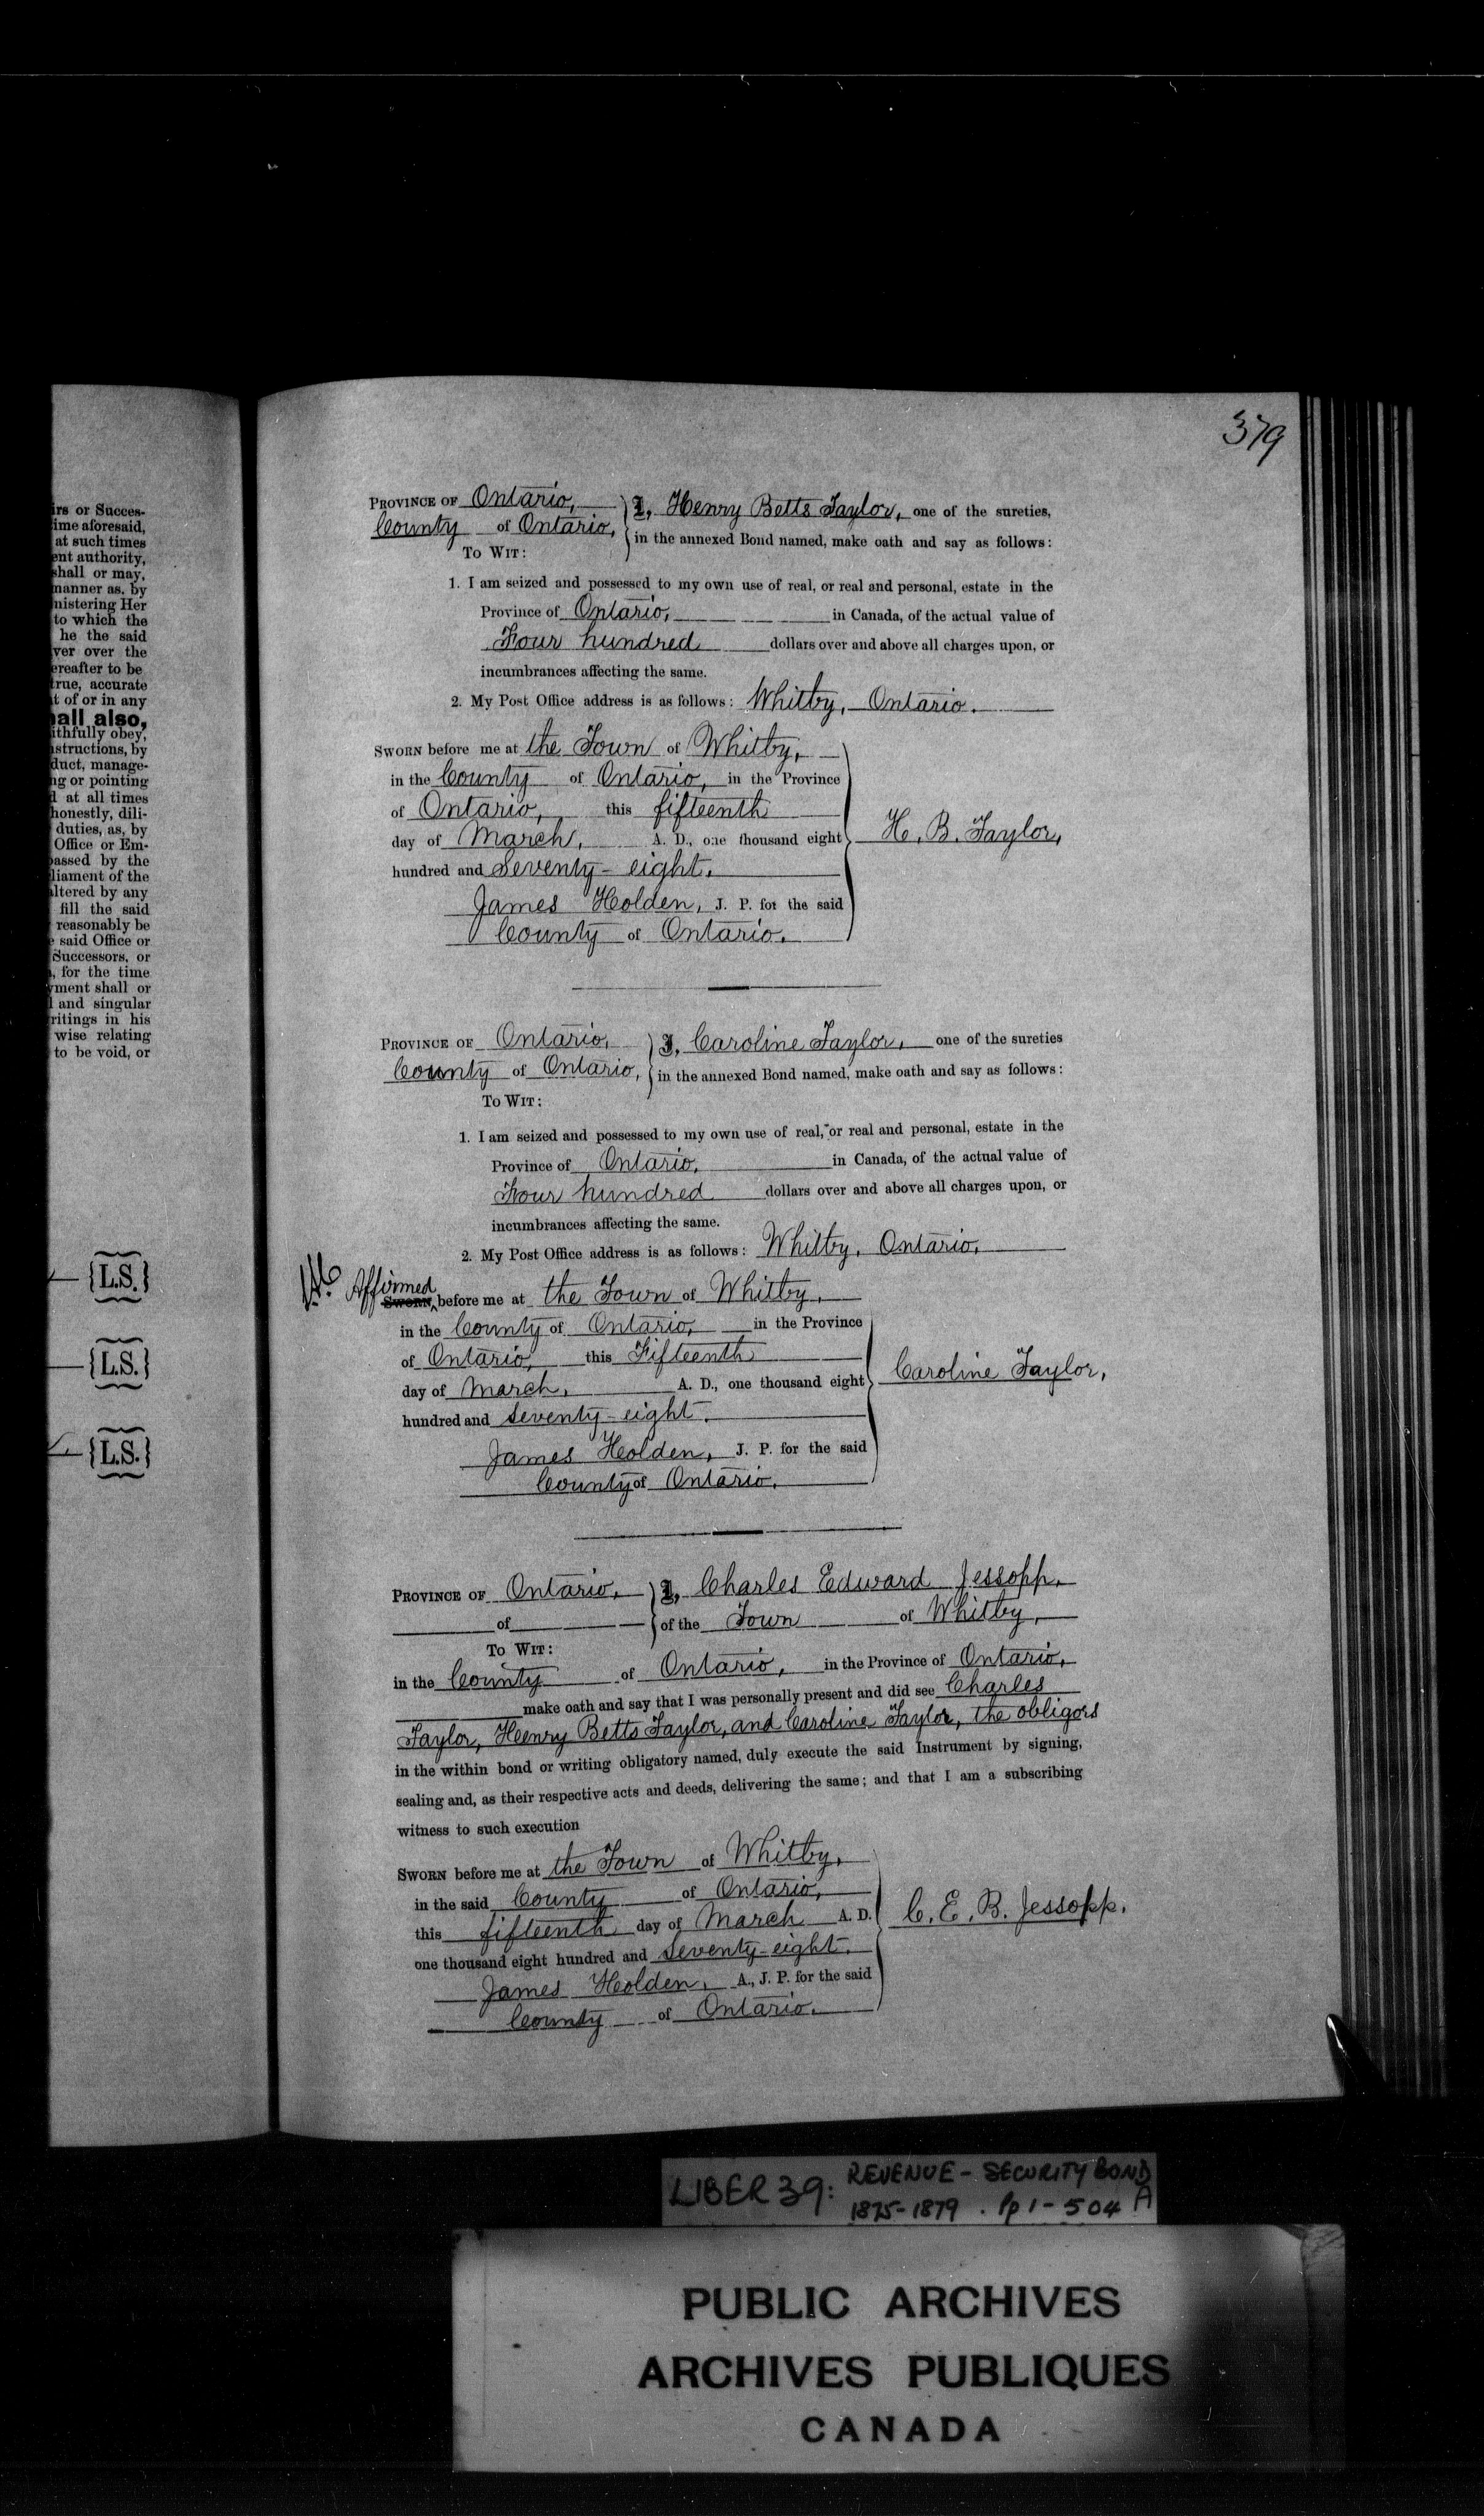 379
irs or Succes-
ime aforesaid,
at such times
ent authority,
shall or may,
manner as, by
nistering Her
to which the
he the said
ver over the
ereafter to be
true, accurate
t of or in any
all also,
ithfully obey,
structions, by
duct, manage-
ng or pointing
d at all times
honestly, dili-
duties, as, by
Office or Em-
passed by the
liament of the
ltered by any
fill the said
reasonably be
e said Office or
Successors, or
, for the time
yment shall or
l and singular
ritings in his
wise relating
to be void, or
{L.S.}
{L.S.}
{L.S.}
PROVINCE OF Ontario, I, Henry Betts Taylor, one of the sureties,
County of Ontario, in the annexed Bond named, make oath and say as follows:
TO WIT:
1. I am seized and possessed to my own use of real, or real and personal, estate in the
Province of Ontario, in Canada, of the actual value of
Four hundred dollars over and above all charges upon, or
incumbrances affecting the same.
2. My Post Office address is as follows: Whitby, Ontario.
SWORN before me at the Town of Whitby,
in the County of Ontario, in the Province
of Ontario, this fifteenth
day of March, A. D., one thousand eight
H. B. Taylor,
hundred and Seventy-eight.
James Holden, J. P. for the said
County of Ontario.
PROVINCE OF Ontario, I, Caroline Taylor, one of the sureties
County of Ontario, in the annexed Bond named, make oath and say as follows:
TO WIT:
1. I am seized and possessed to my own use of real, or real and personal, estate in the
Province of Ontario, in Canada, of the actual value of
Four hundred dollars over and above all charges upon, or
incumbrances affecting the same.
2. My Post Office address is as follows: Whitby, Ontario,
Affirmed
SWORN, before me at the Town of Whitby,
in the County of Ontario, in the Province
of Ontario, this Fifteenth
day of March, A. D., one thousand eight
Caroline Taylor,
hundred and Seventy-eight.
James Holden, J. P. for the said
County of Ontario.
PROVINCE OF Ontario, I, Charles Edward Jessopp,
of of the Town of Whitby,
TO WIT:
in the County of Ontario, in the Province of Ontario,
make oath and say that I was personally present and did see Charles
Taylor, Henry Betts Taylor, and Caroline Taylor, the obligors
in the within bond or writing obligatory named, duly execute the said Instrument by signing,
sealing and, as their respective acts and deeds, delivering the same; and that I am a subscribing
witness to such execution
SWORN before me at the Town of Whitby,
in the said County of Ontario,
this fifteenth day of March A. D.
C. E. B. Jessopp.
one thousand eight hundred and Seventy-eight.
James Holden, A., J. P. for the said
County of Ontario.
LIBER 39: REVENUE - SECURITY BOND
1875-1879 . Pp 1-504 A
PUBLIC ARCHIVES
ARCHIVES PUBLIQUES
CANADA